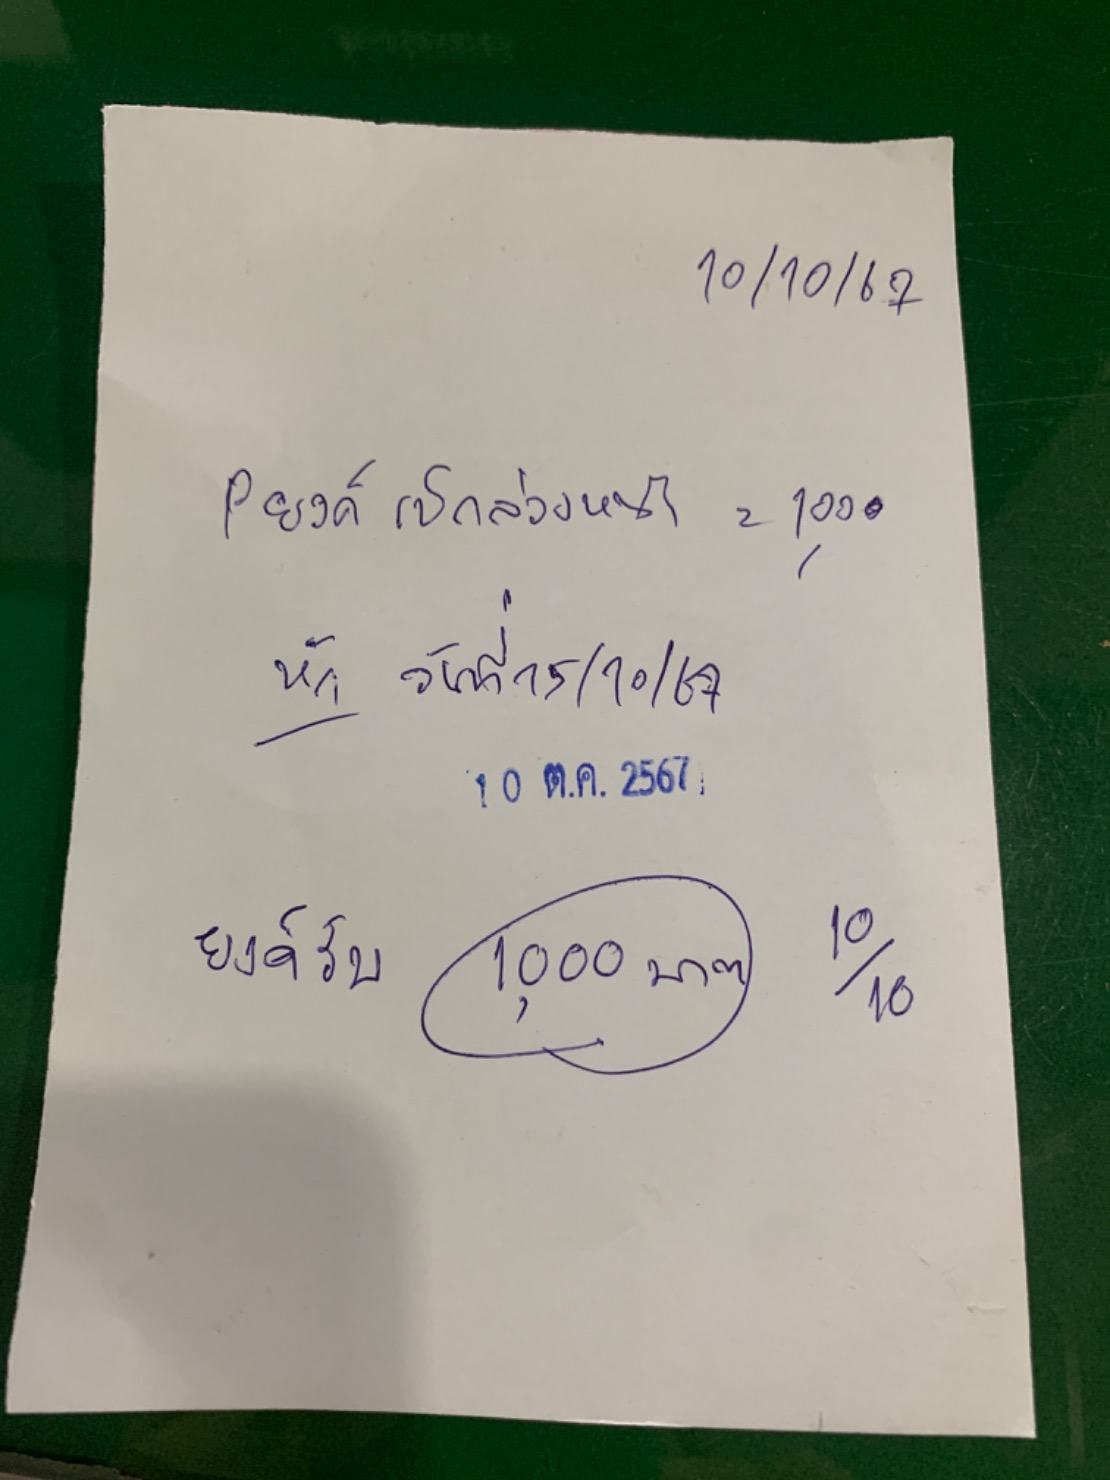 10/10/67
Pยงค์ เบิกล่วงหน้า = 1,000
หัก วันที่ 15/10/67
10 ต.ค. 2567
ยงค์รับ 1,000 บาท 10/10